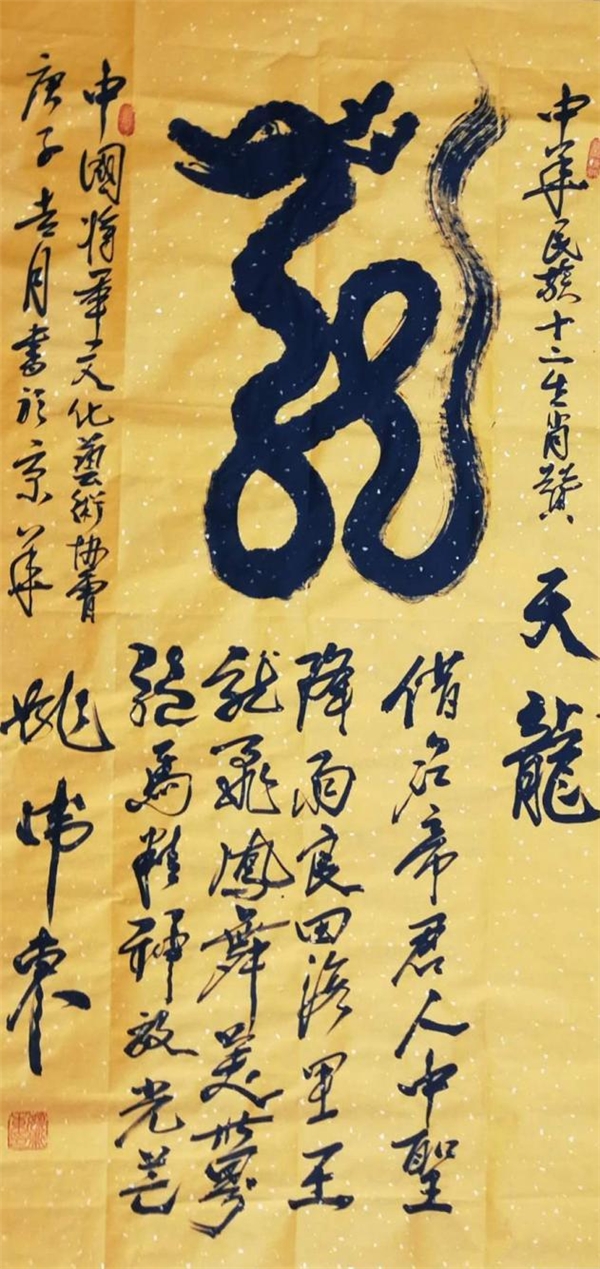 中華民族十二生肖赞
天龍
龍
借名帝君人中聖
降雨良田海里王
龙飛鳳舞美世界
龍馬精神放光芒
中國将軍文化藝術协會
庚子吉月書於京華
姚東